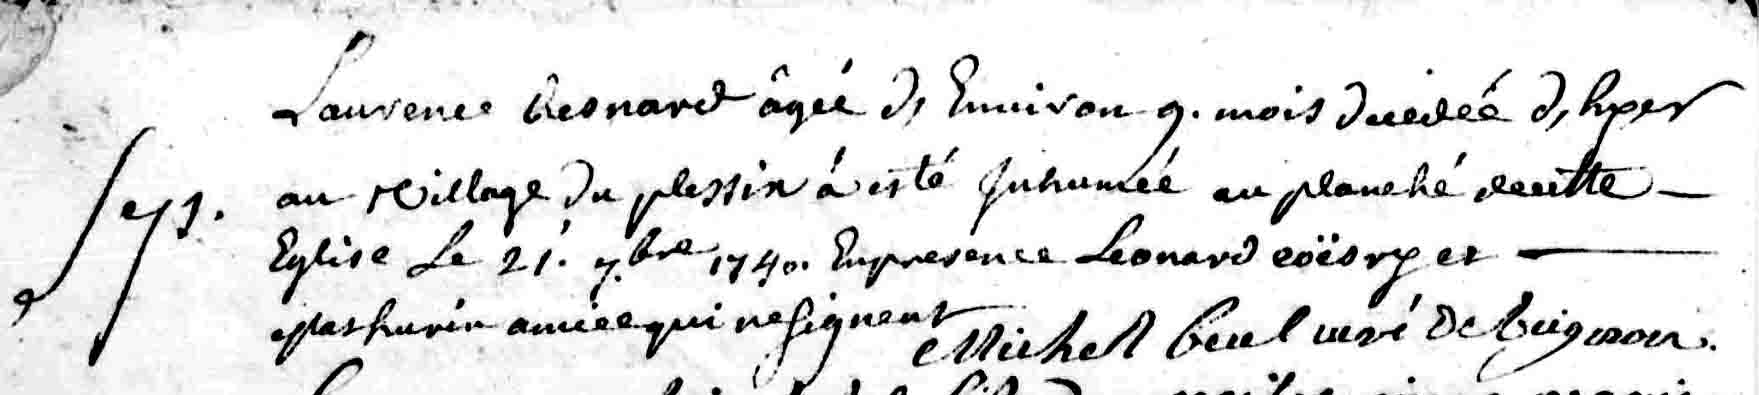 Laurence besnard âgée de Environ 9. mois decedée d'hyer
Sep. au Village du plessix à esté Inhumée au planché decette
Eglise Le 21. 7.bre 1740. En presence Leonard et
Mathurin qui ne signent Michel curé De